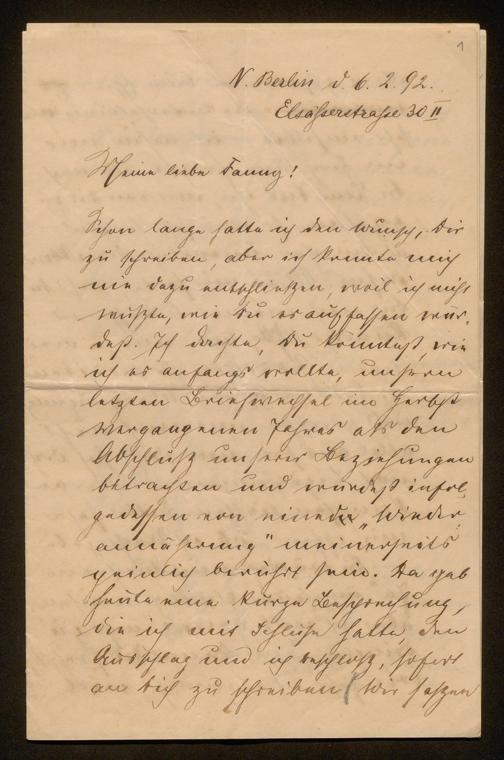 1
N. Berlin d. 6. 2. 92.
Elsässerstrasse 30 II
Meine liebe Fanny!
Schon lange hatte ich den Wunsch, Dir
zu schreiben, aber ich konnte mich
nie dazu entschließen, weil ich nicht
wußte, wie Du es auffassen wür-
dest. Ich dachte, Du könntest, wie
ich es anfangs wollte, unsern
letzten Briefwechsel im Herbst
vergangenen Jahres als den
Abschluß unserer Beziehungen
betrachten und würdest infol-
gedessen von einer „Wieder-
annäherung" meinerseits
peinlich berührt sein. Da gab
heute eine kurze Besprechung,
die ich mit Schluse hatte, den
Ausschlag und ich beschloß, sofort
an Dich zu schreiben. Wir saßen